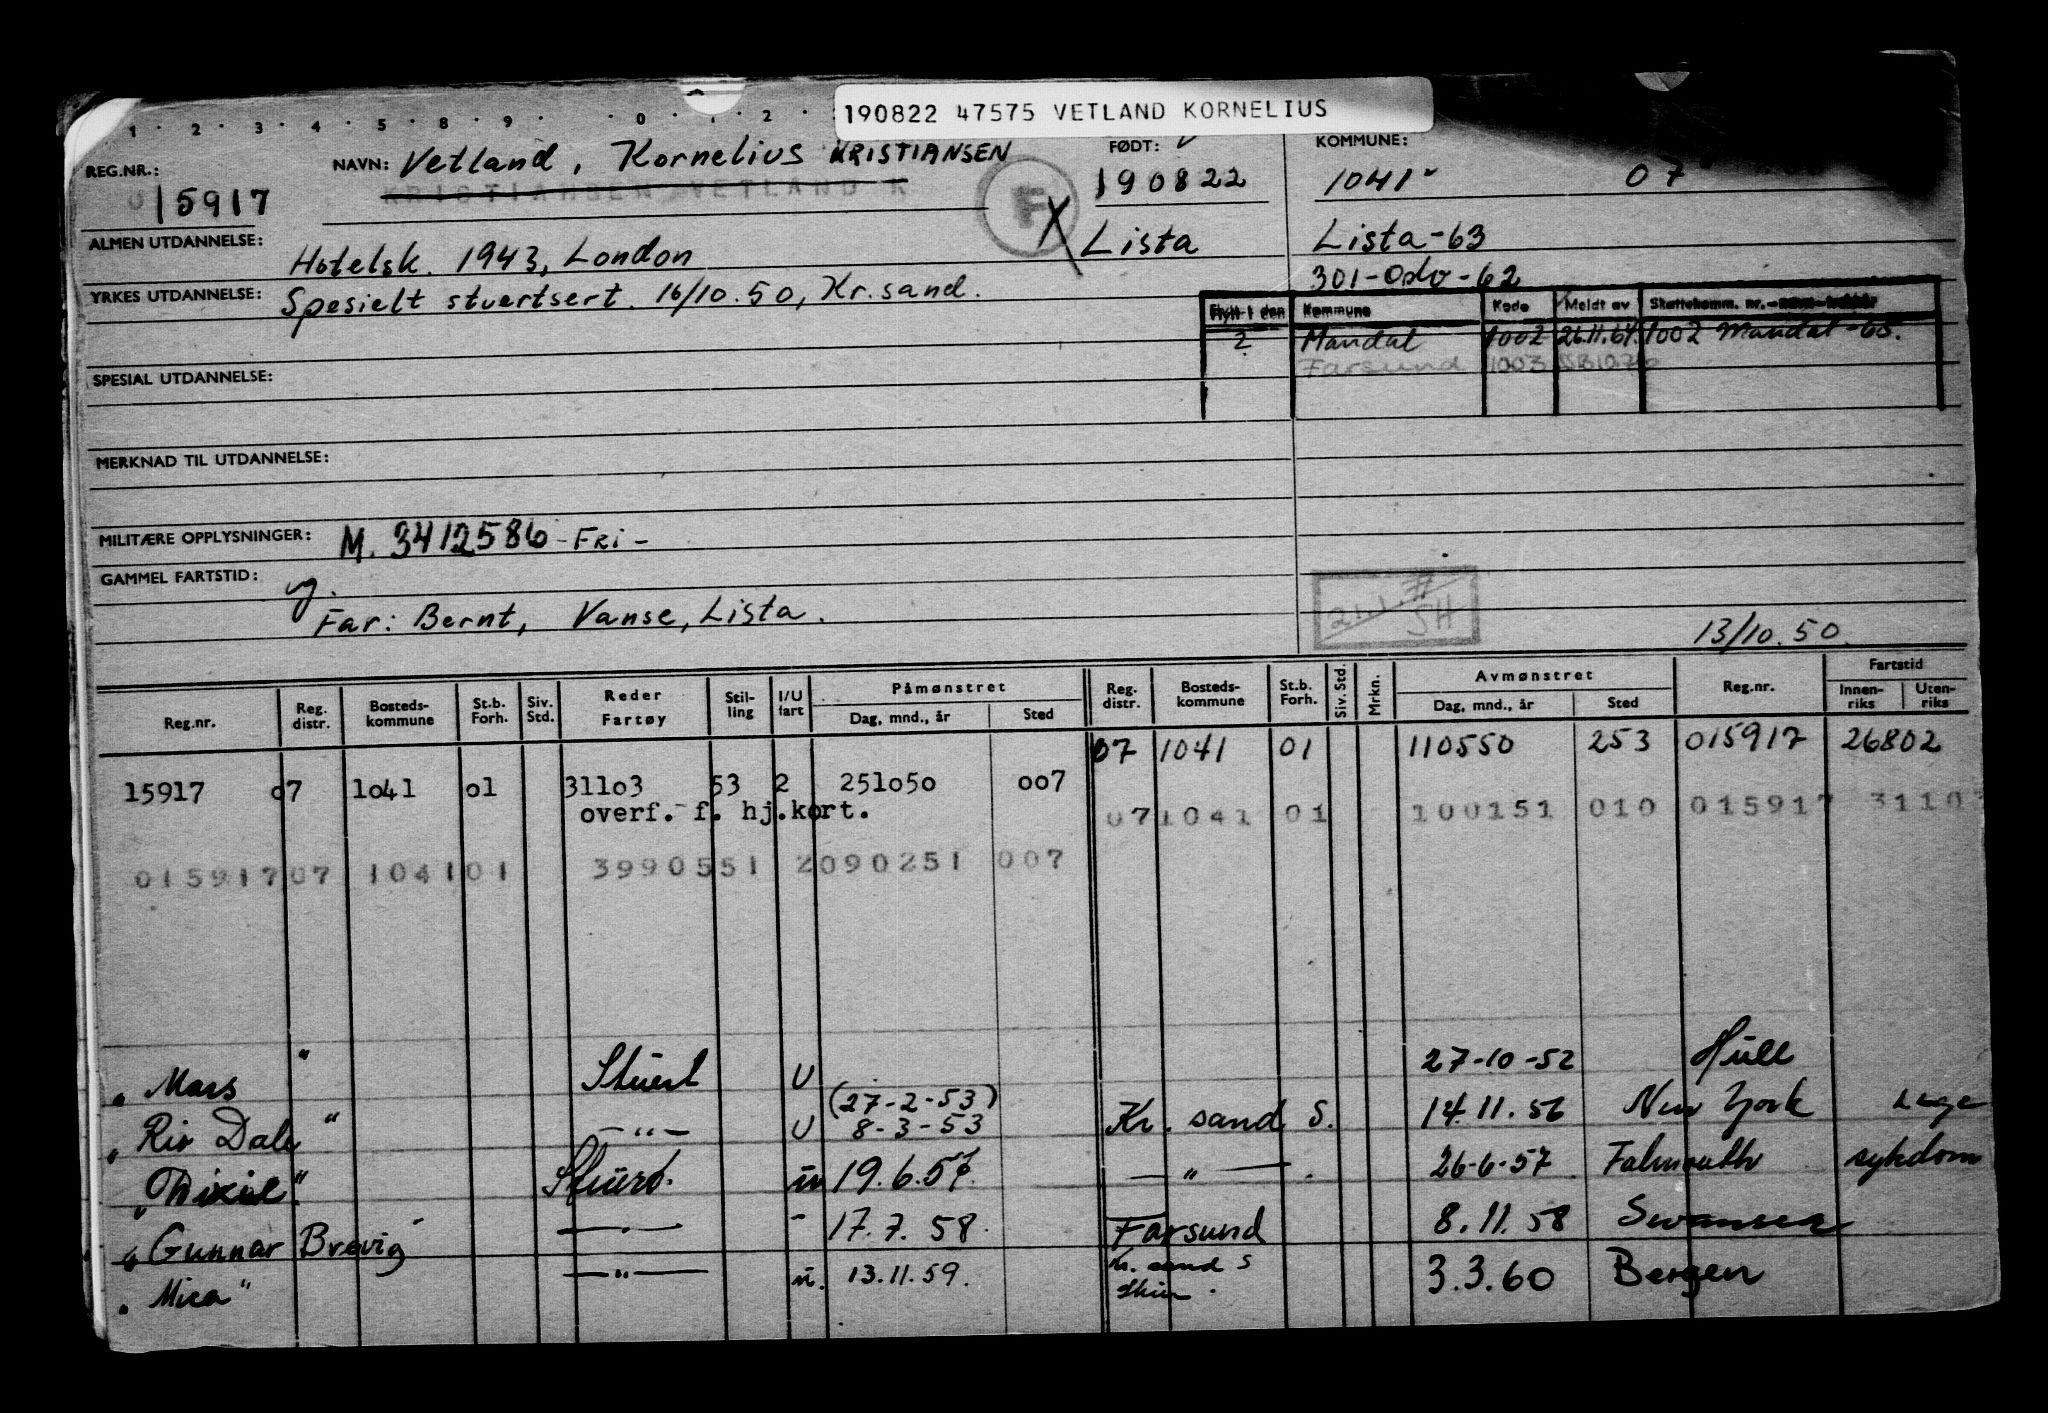 190822 47575 VETLAND KORNELIUS
1 · 2 · 3 · 4 · 5 · 8 · 9 · · 0 · 1 · 2 ·
REG.NR.: 015917
NAVN: Vetland, Kornelius KRISTIANSEN
KRISTIANSEN VETLAND K
F
X
FØDT: 190822
Lista
KOMMUNE: 1041 07
Lista-63
301-Oslo-62
ALMEN UTDANNELSE: Hotelsk. 1943, London
YRKES UTDANNELSE: Spesielt stuertsert. 16/10.50, Kr.sand.
Flytt den Kommune Kode Meldt av Skattekomm. nr.
2 Mandal 1002 26.11.64. 1002 Mandal-65.
Farsund 1003
SPESIAL UTDANNELSE:
MERKNAD TIL UTDANNELSE:
MILITÆRE OPPLYSNINGER: M. 3412586 - FRI -
GAMMEL FARTSTID: ug.
Far: Bernt, Vanse, Lista.
SH
13/10.50.
Reg.nr. Reg. distr. Bosteds-kommune St.b. Forh. Siv. Std. Reder Fartøy Stil-ling I/U fart Påmønstret Dag, mnd., år Sted Reg. distr. Bosteds-kommune St.b. Forh. Siv. Std. Mrkn. Avmønstret Dag, mnd., år Sted Reg.nr. Fartstid Innen-riks Uten-riks
07 1041 01 110550 253 015917 26802
15917 07 1041 01 31103 53 2 251050 007
overf. f. hj.kort.
07 1041 01 100151 010 015917 3110
015917 07 1041 01 39905 51 2 090251 007
" Mars " Stuert U 27-10-52 Hull
(27-2-53)
" Riv Dale " - " - U 8-3-53 Kr. sand S. 14.11.56 New York Lege
" " Stuert. u 19.6.57. - " - 26-6-57 Falmouth sykdom
" Gunnar Brøvig - " - 17.7.58. Farsund 8.11.58 Swansea
" Mica " - " - u. 13.11.59. Kr. sand S 3.3.60 Bergen